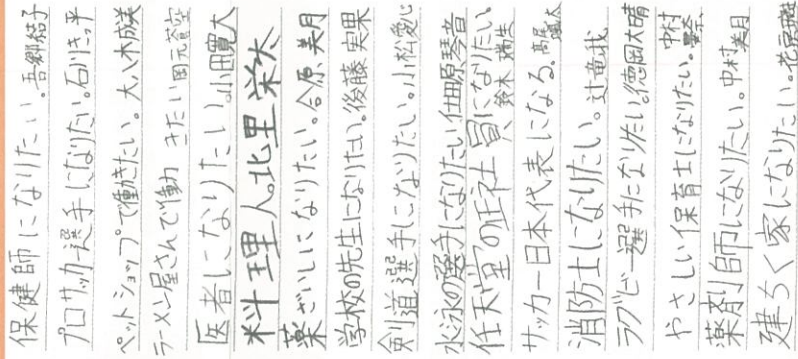 保健師になりたい。吾郷結子
プロサッカー選手になりたい。石川さっ平
ペットショップで働きたい。大八木成美
ラーメン屋さんで働きたい 岡元蒼空
医者になりたい。小田寛大
料理人。北里栄太
薬ざいしになりたい。合原美月
学校の先生になりたい。後藤実果
剣道選手になりたい。小松愛心
水泳の選手になりたい 仕田原琴音
任天堂の正社員になりたい。鈴木瑞生
サッカー日本代表になる。高尾
消防士になりたい。辻竜我
ラグビー選手になりたい。徳岡大晴
やさしい保育士になりたい。中村
薬剤師になりたい。中村美月
建ちく家になりたい。